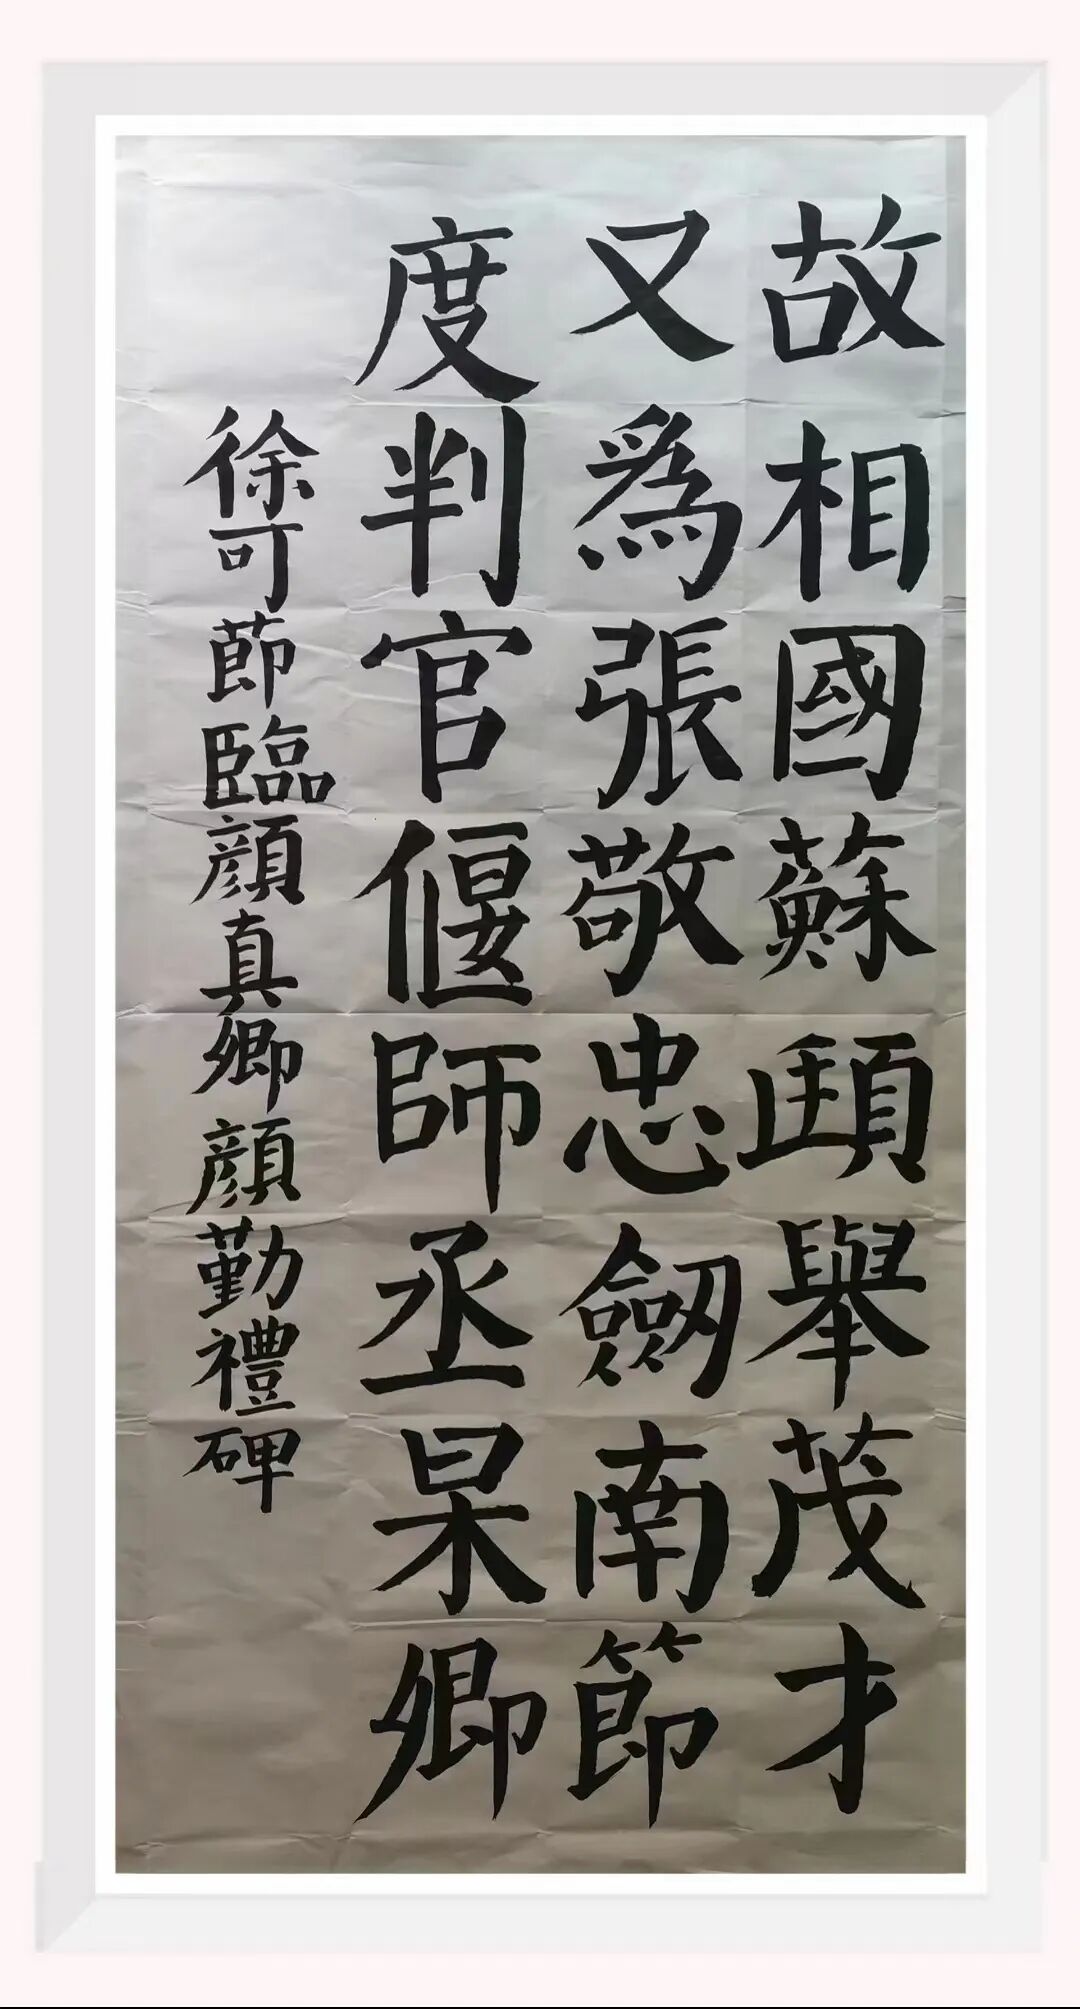 故相國蘇頲舉茂才
又為張敬忠劒南節
度判官偃師丞杲卿
徐可莭臨顔真卿顔勤禮碑